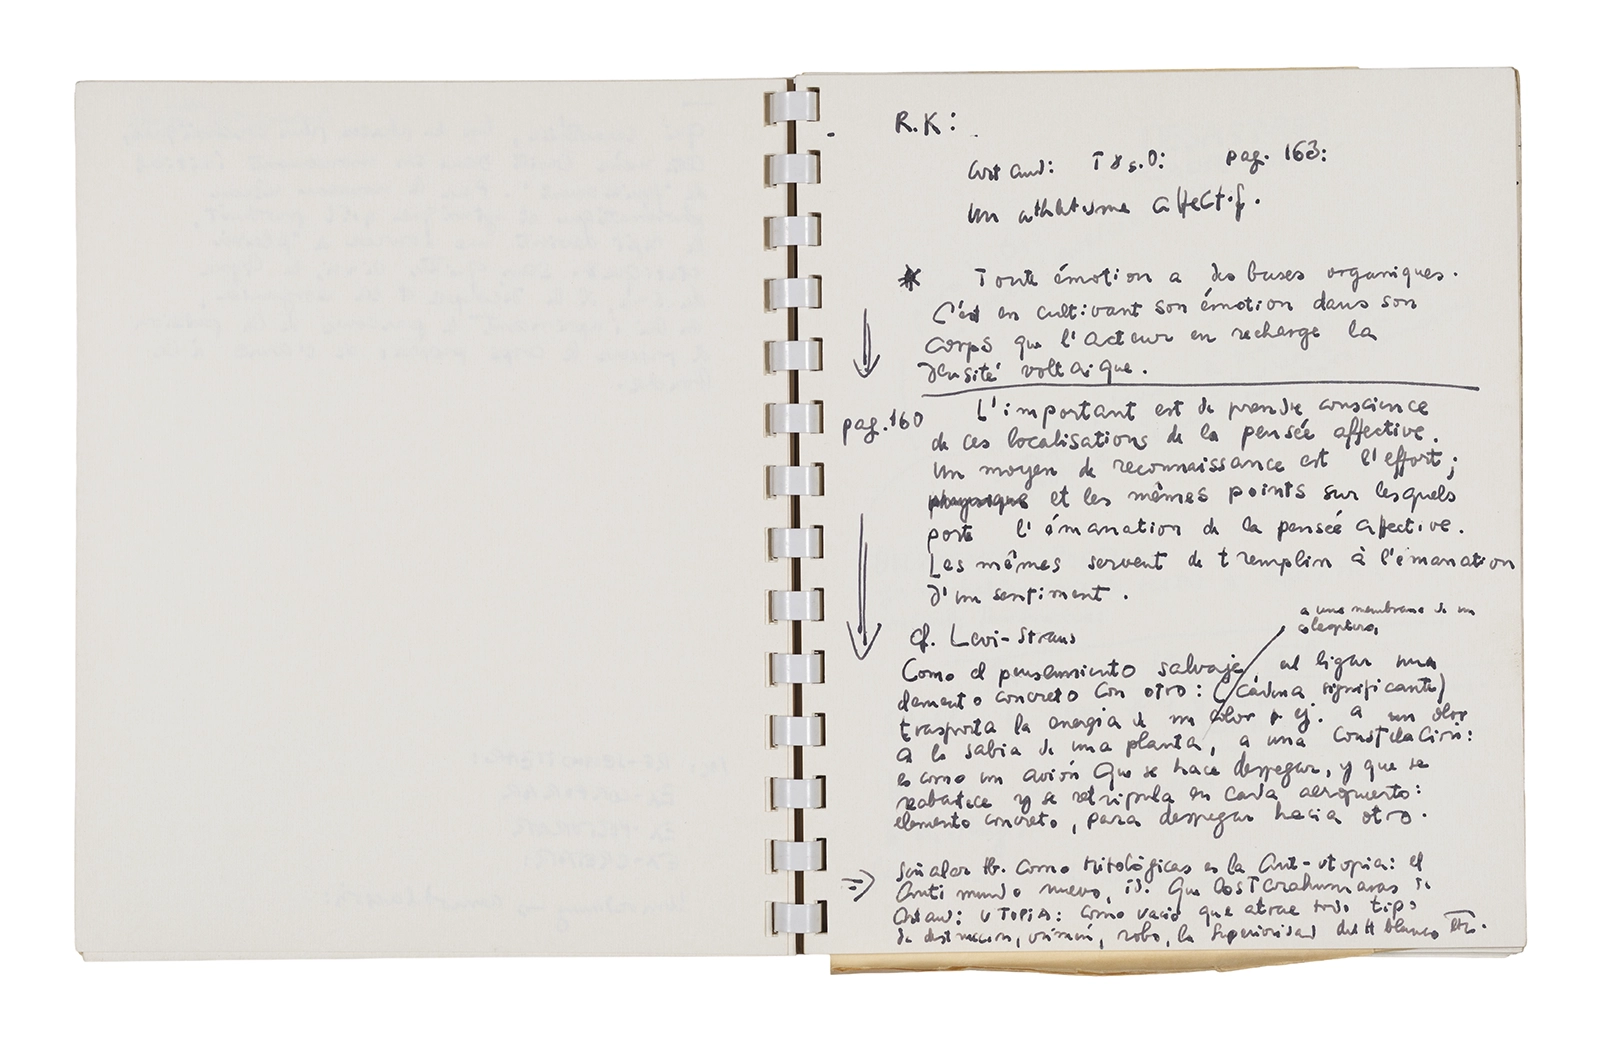 R.K:
Artaud: T & s.D: pag. 163:
Un athlétisme affectif.
* Toute émotion a des bases organiques.
C'est en cultivant son émotion dans son
corps que l'acteur en recharge la
densité voltaique.
pag.160 L'important est de prendre conscience
de ces localisations de la pensée affective.
Un moyen de reconnaissance est l'effort;
physique et les mêmes points sur lesquels
porte l'émanation de la pensée affective.
Les mêmes servent de tremplin à l'émanation
d'un sentiment.
a una membrana de un
coleoptero,
cf. Levi-Straus
Como el pensamiento salvaje al ligar una
elemento concreto con otro: (cadena significante)
trasporta la energia de un color p ej. a un olor
a la sabia de una planta, a una constelación:
es como un avión que se hace despegar, y que se
reabastece y se retripula en cada aeropuerto:
elemento concreto, para despegar hacia otro.
Señalar tb. como Mitológicas es la Ant-utopia: el
Anti mundo nuevo, que los Tarahumaras de
Artaud: UTOPIA: como vacio que atrae todo tipo
de destruccion, robo, la superioridad del H blanco etc.